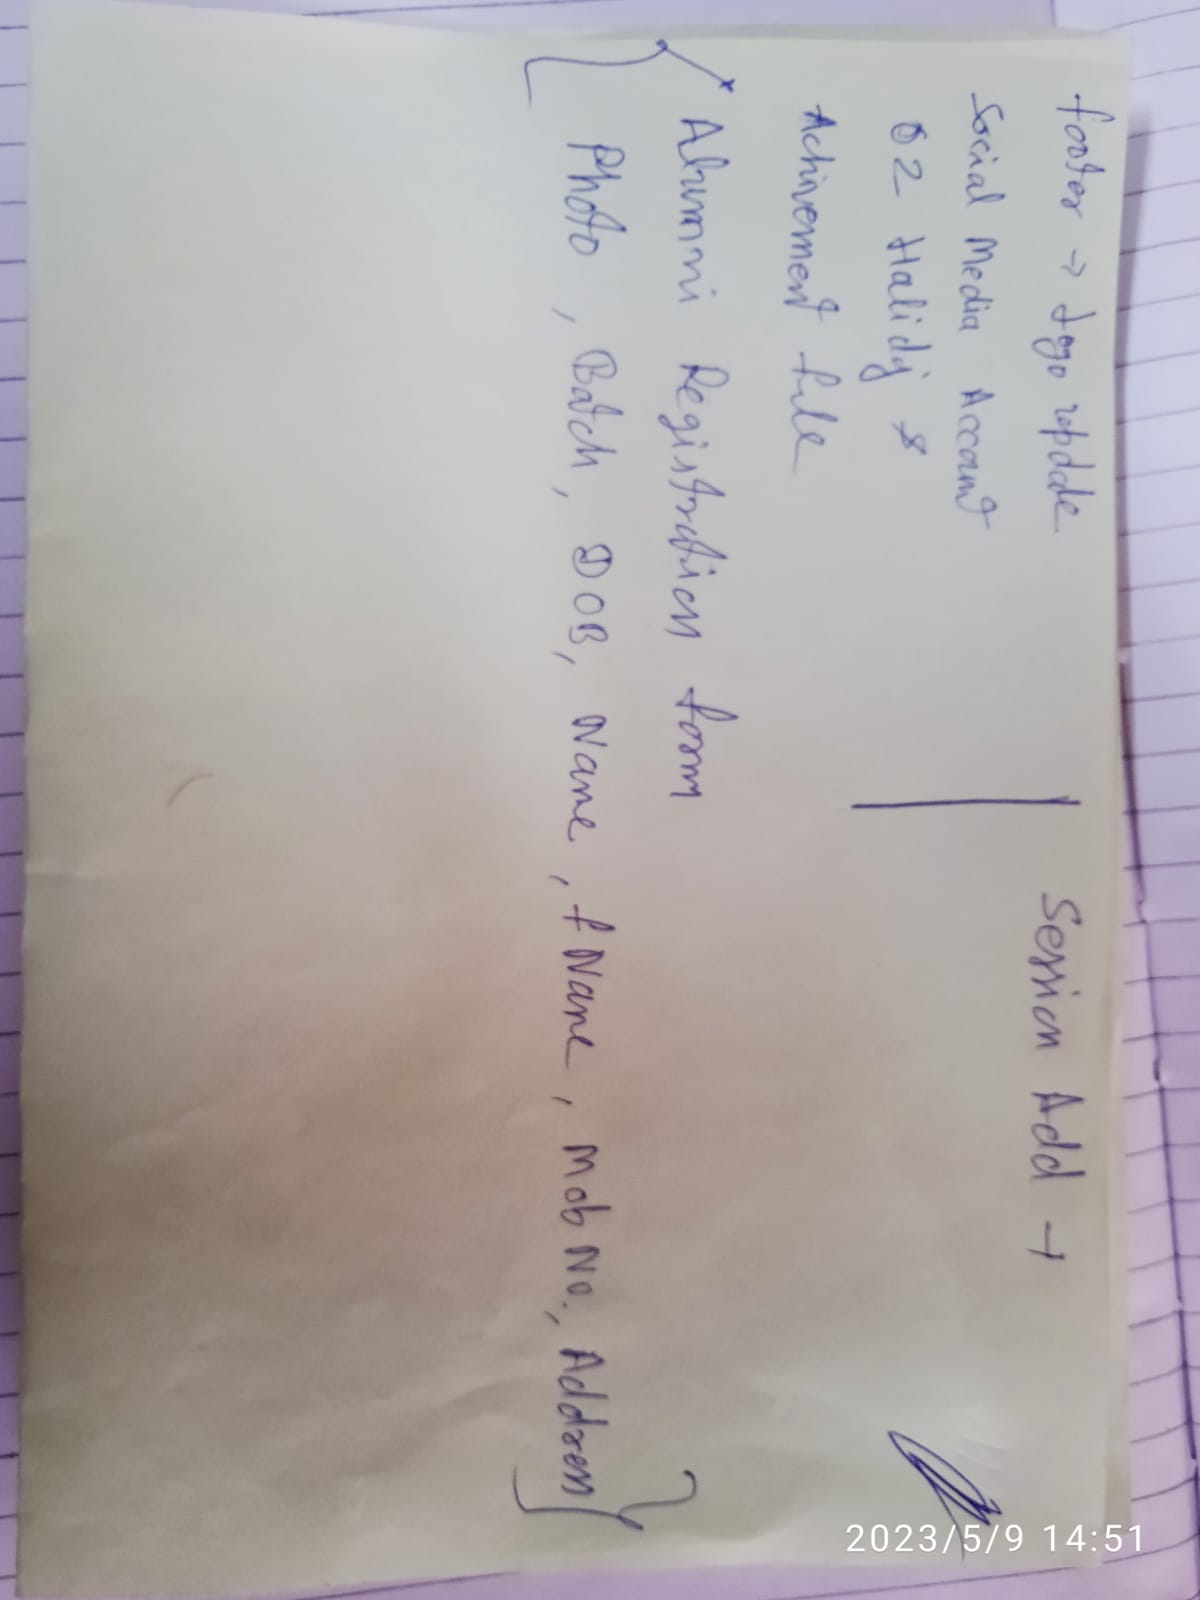 footer → logo update
Session Add →
Social Media Account
02 Haliday
Achivement file
Alumni Registration form
Photo, Batch, DOB, Name, f Name, Mob No., Address
2023/5/9 14:51